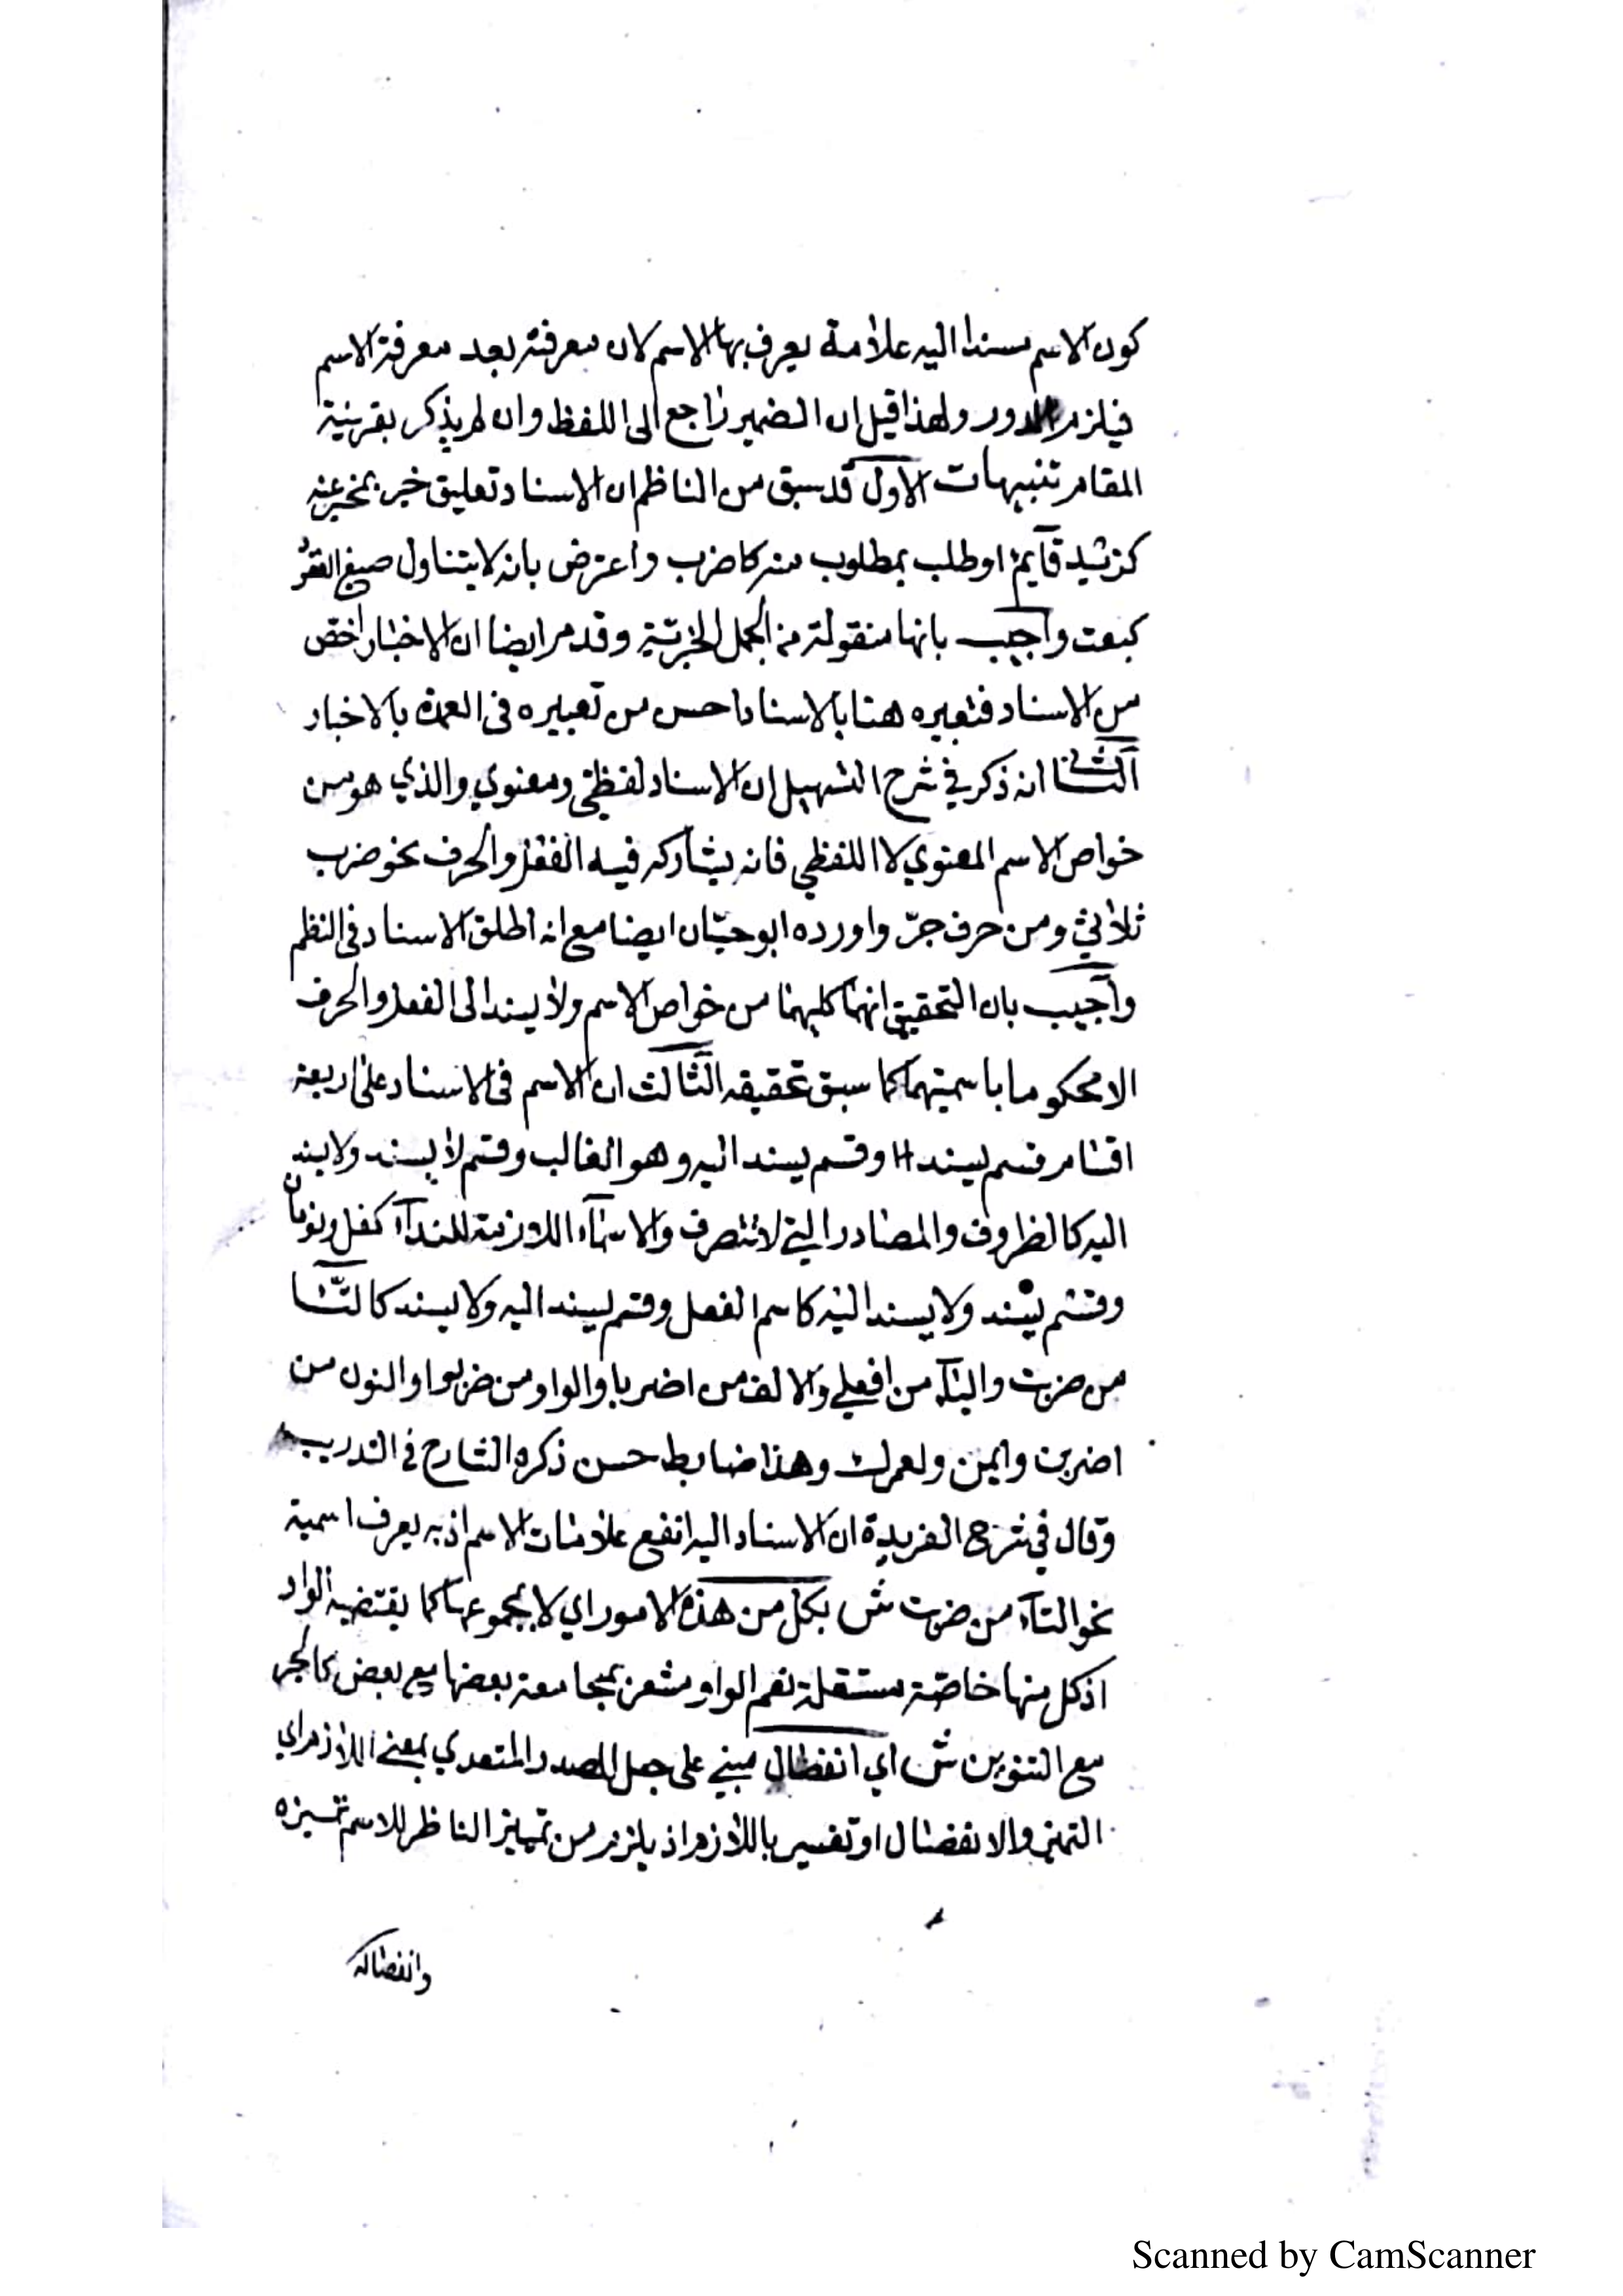 كون الاسم مسندا اليه علامة يعرف بها الاسم لان معرفته بعد معرفة الاسم
فيلزم الدور ولهذا قيل ان الضمير راجع الى اللفظ وان لم يذكر بقرينة
المقام تنبيهات الاول قد سبق من الناظم ان الاسناد تعليق خبر بمخبر عنه
كزيد قآيم او طلب بمطلوب منه كاضرب واعترض بانه لا يتناول صيغ العقود
كبعت وأجيب بانها منقولة من الجمل الخبرية وقد مر ايضا ان الاخبار اخص
من الاسناد فتعبيره هنا بالاسناد احسن من تعبيره فى العمدة بالاخبار
الثانى انه ذكر في شرح التسهيل ان الاسناد لفظي ومعنوي والذي هو من
خواص الاسم المعنوي لا اللفظي فانه يشاركه فيه الفعل والحرف نحو ضرب
ثلاثي ومن حرف جرّ واورده ابو حيّان ايضا مع انه اطلق الاسناد فى النظم
وأجيب بان التحقيق انهما كليهما من خواص الاسم ولا يسند الى الفعل والحرف
الا محكوما باسميتهما كما سبق تحقيقه الثالث ان الاسم فى الاسناد على اربعة
اقسام قسم يسند اا وقسم يسند اليه وهو الغالب وقسم لا يسند ولا يسند
اليه كالظروف والمصادر التي لا تتصرف والاسمآء اللازمة للندآء كفل ونومان
وقسم يسند ولا يسند اليه كاسم الفعل وقسم يسند اليه ولا يسند كالتّا
من ضربت واليآء من افعلي والالف من اضربا والواو من ضربوا والنون من
اضربن وايمن ولعمرك وهذا ضابط حسن ذكره الشارح في التدريب
وقال في شرح الفريدة ان الاسناد اليه انفع علامات الاسم اذ به يعرف اسمية
نحو التآء من ضربت ش بكل من هذه الامور اي لا بمجموعها كما يقتضيه الواو
اذ كل منها خاصّة مستقلة نعم الواو مشعرة بمجامعة بعضها مع بعض كالجر
مع التنوين ش اي انفصال مبني على جعل المصدر المتعدي بمعنى اللازم اي
التميز والانفصال او تفسير باللازم اذ يلزم من تمييز الناظر للاسم تميزه
وانفصاله
Scanned by CamScanner